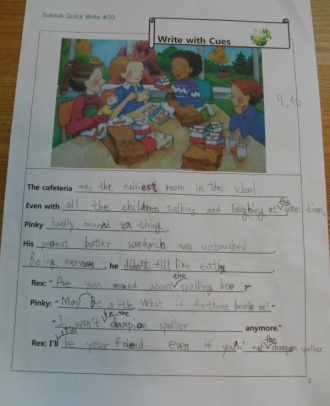 Suksuk Quick Write #20
Write with Cues
The cafeteria was the room in the school.
Even with all the children talking and laughing at the same time,
Pinky hardly heared a thing.
His peanut butter sandwich was untouched
Being nervous, he didn't fill like eating
Rex: "Are you woried about the spalling bee?"
Pinky: "May be a little What if Anthone
"I won't be the champion speller anymore."
Rex: I'll still be your friend even if you're not the champion speller
2